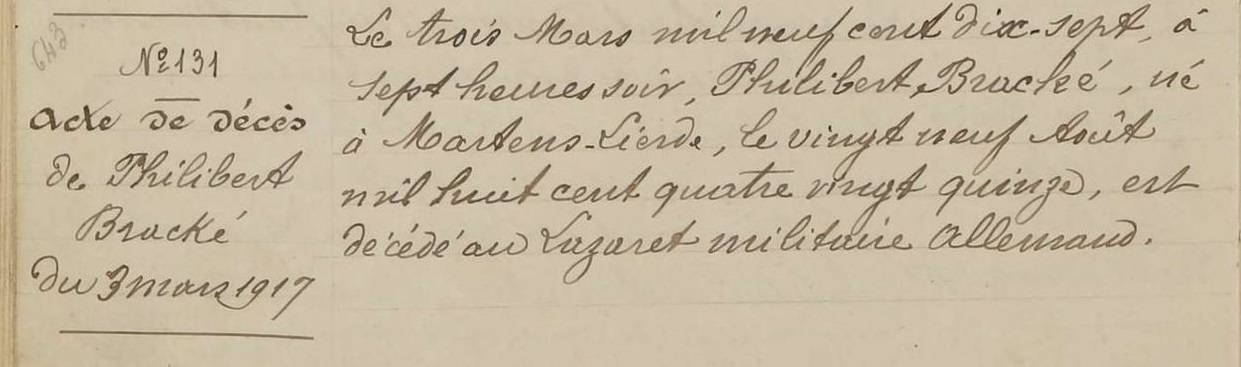 643
N° 131
acte de décès
de Philibert
Bracké
du 3 mars 1917
Le trois Mars mil neuf cent dix-sept, à
sept heures soir, Philibert Bracké, né
à Martens-Lierde, le vingt neuf Août
mil huit cent quatre vingt quinze, est
décédé au Lazaret militaire Allemand.